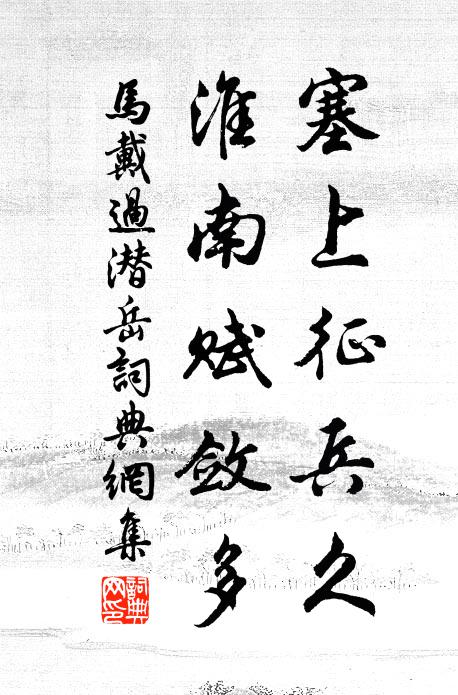 塞上征兵久
淮南赋敛多
馬戴過潜岳詞典網集
詞典网印